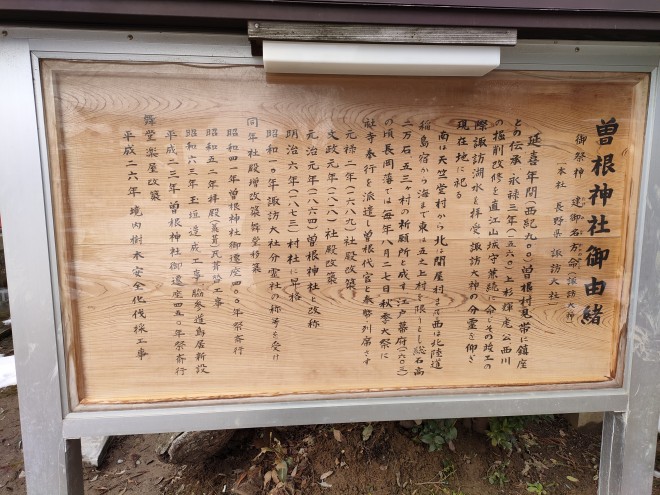 曽根神社御由緒
御祭神 建御名方命(諏訪大神)
(本社 長野県 諏訪大社)
延喜年間(西紀九〇〇)曽根村見帯に鎮座
との伝承・永禄三年(一五六〇)上杉輝虎公西川
の掘削改修を直江山城守兼続に命じその竣工の
際諏訪湖水を拝受諏訪大神の分霊を仰ぎ
現在地に祀る
南は天竺堂村から北は間屋村まで西は北陸道
稲島宿から海まで東は五之上村を限りとし総石高
二万石三三ヶ村の祈願所と成す江戸幕府(一六〇三)
の頃長岡藩では毎年八月二七日秋季大祭に
社寺奉行を派遣し曽根代官と奉幣列席さす
元禄二年(一六八九)社殿改築
文政元年(一八一八)社殿改築
元治元年(一八六四)曽根神社と改称
明治六年(一八七三)村社に昇格
昭和一〇年諏訪大社分霊社の称号を受け
同年社殿増改築 舞堂移築
昭和四一年曽根神社御遷座四〇〇年祭斎行
昭和五二年拝殿(萱葺)瓦葺替工事
昭和六三年玉垣造成工事・脇参道鳥居新設
平成二三年曽根神社御遷座四五〇年祭斎行
舞堂楽屋改築
平成二六年 境内樹木安全化伐採工事